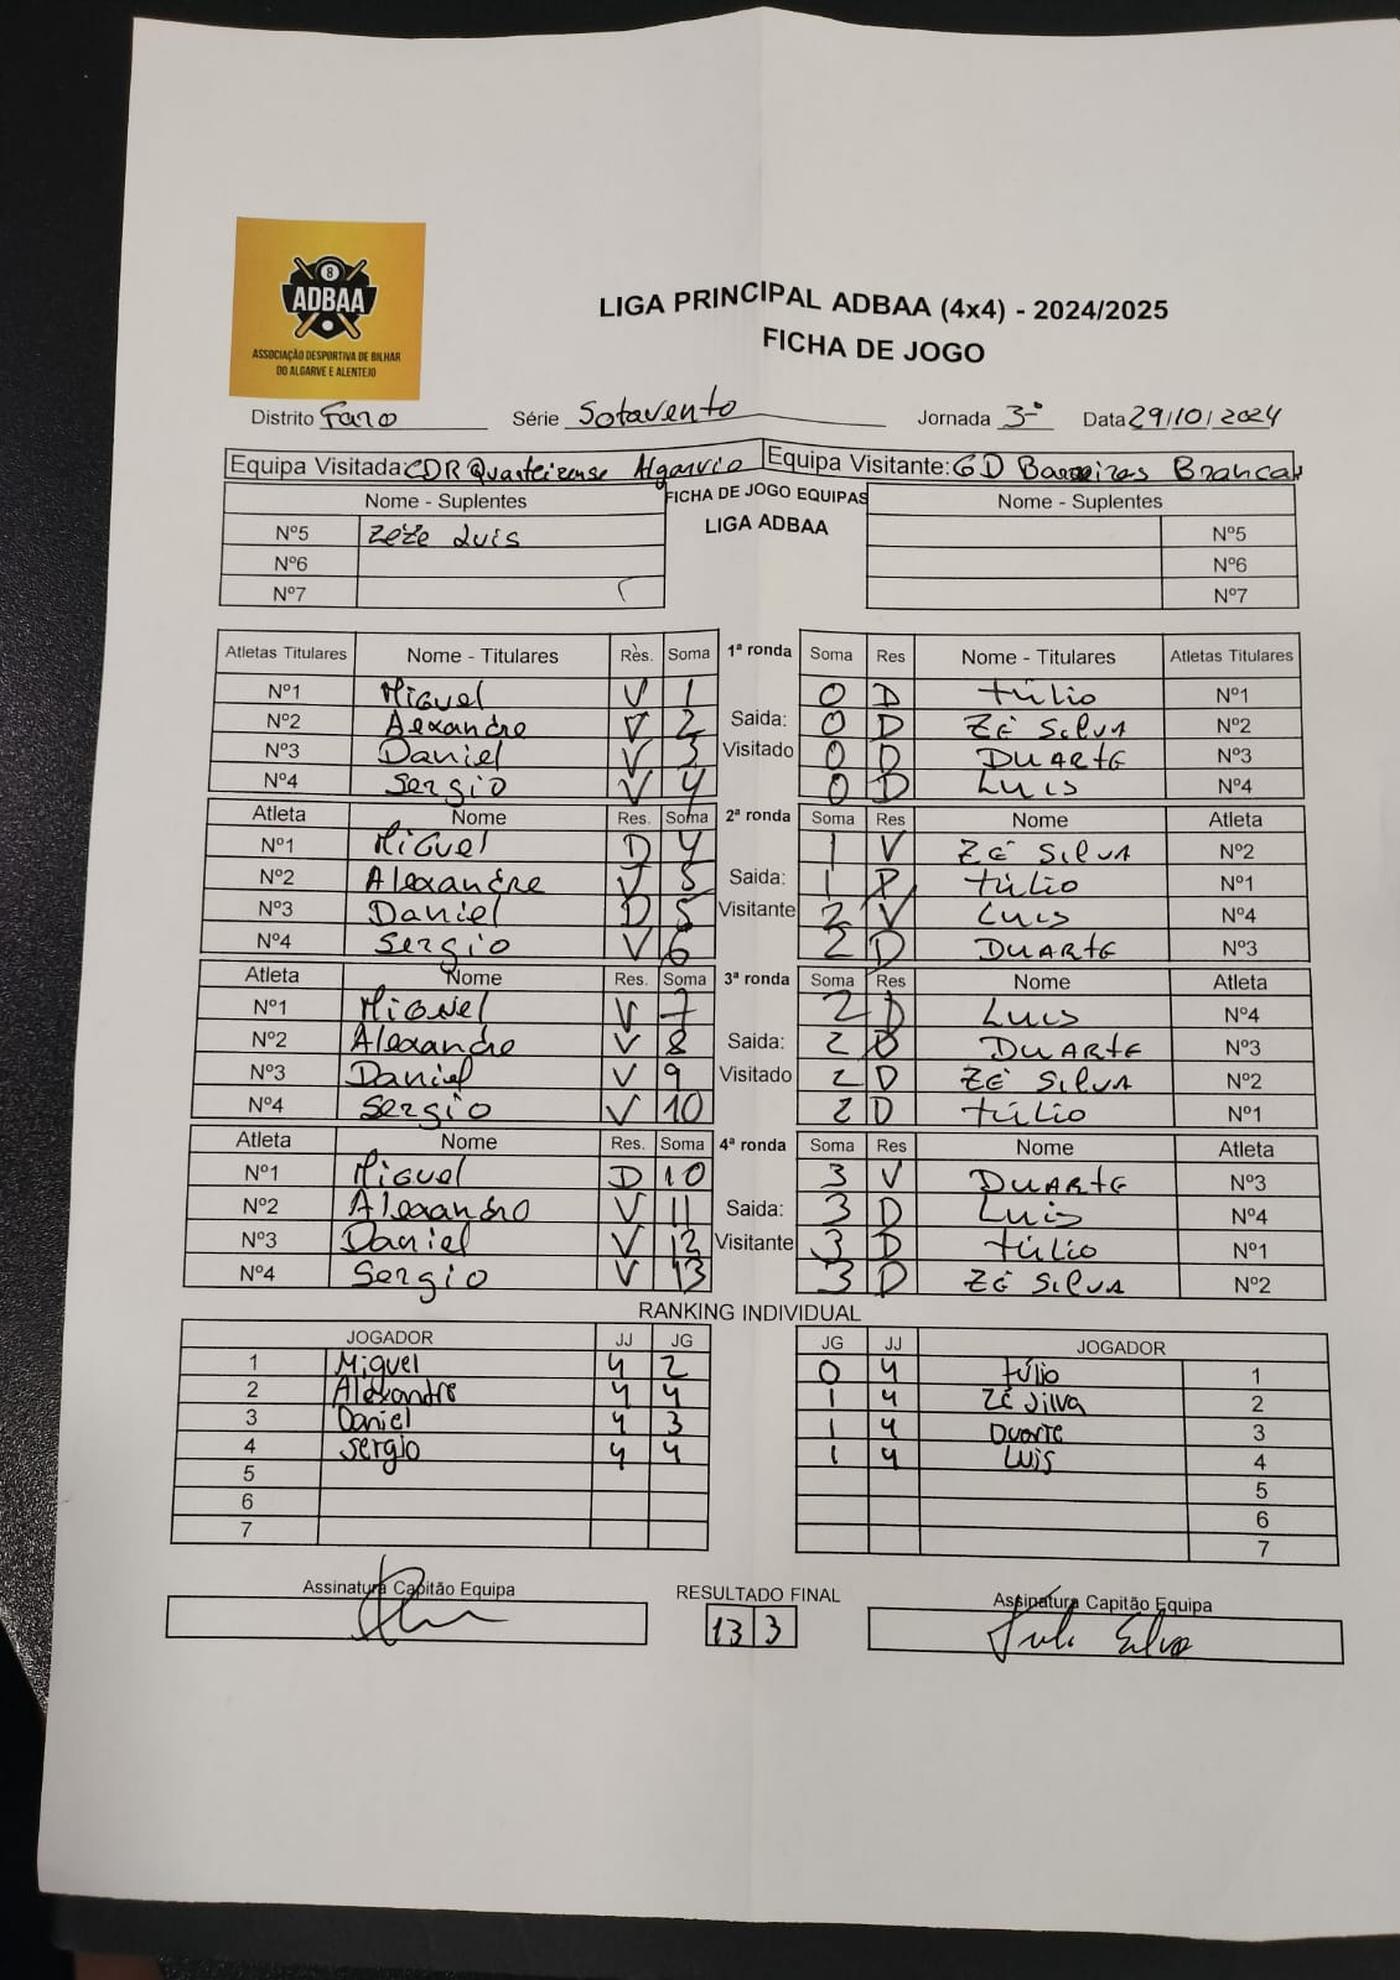 8
ADBAA
ASSOCIAÇÃO DESPORTIVA DE BILHAR
DO ALGARVE E ALENTEJO
LIGA PRINCIPAL ADBAA (4x4) - 2024/2025
FICHA DE JOGO
Distrito Faro Série Sotavento Jornada 3ª Data 29/10/2024
Equipa Visitada: CDR Quarteirense Algarvio Equipa Visitante: GD Barreiras Brancas
Nome - Suplentes FICHA DE JOGO EQUIPAS Nome - Suplentes
LIGA ADBAA
Nº5 Zézé Luis Nº5
Nº6 Nº6
Nº7 Nº7
Atletas Titulares Nome - Titulares Res. Soma 1ª ronda Soma Res Nome - Titulares Atletas Titulares
Nº1 Miguel V 1 0 D túlio Nº1
Nº2 Alexandre V 2 Saida: 0 D ZÉ SilVA Nº2
Nº3 Daniel V 3 Visitado 0 D DUARtE Nº3
Nº4 Sergio V 4 0 D Luis Nº4
Atleta Nome Res. Soma 2ª ronda Soma Res Nome Atleta
Nº1 Miguel D 4 1 V ZÉ SilVA Nº2
Nº2 Alexandre V 5 Saida: 1 D túlio Nº1
Nº3 Daniel D 5 Visitante 2 V Luis Nº4
Nº4 Sergio V 6 2 D DUARtE Nº3
Atleta Nome Res. Soma 3ª ronda Soma Res Nome Atleta
Nº1 Miguel V 7 2 D Luis Nº4
Nº2 Alexandre V 8 Saida: 2 D DUARtE Nº3
Nº3 Daniel V 9 Visitado 2 D ZÉ SilVA Nº2
Nº4 Sergio V 10 2 D túlio Nº1
Atleta Nome Res. Soma 4ª ronda Soma Res Nome Atleta
Nº1 Miguel D 10 3 V DUARtE Nº3
Nº2 Alexandre V 11 Saida: 3 D Luis Nº4
Nº3 Daniel V 12 Visitante 3 D túlio Nº1
Nº4 Sergio V 13 3 D ZÉ SilVA Nº2
RANKING INDIVIDUAL
JOGADOR JJ JG JG JJ JOGADOR
1 Miguel 4 2 0 4 túlio 1
2 Alexandre 4 4 1 4 Zé Silva 2
3 Daniel 4 3 1 4 Duarte 3
4 Sergio 4 4 1 4 Luis 4
5 5
6 6
7 7
Assinatura Capitão Equipa RESULTADO FINAL Assinatura Capitão Equipa
13 3 Silva